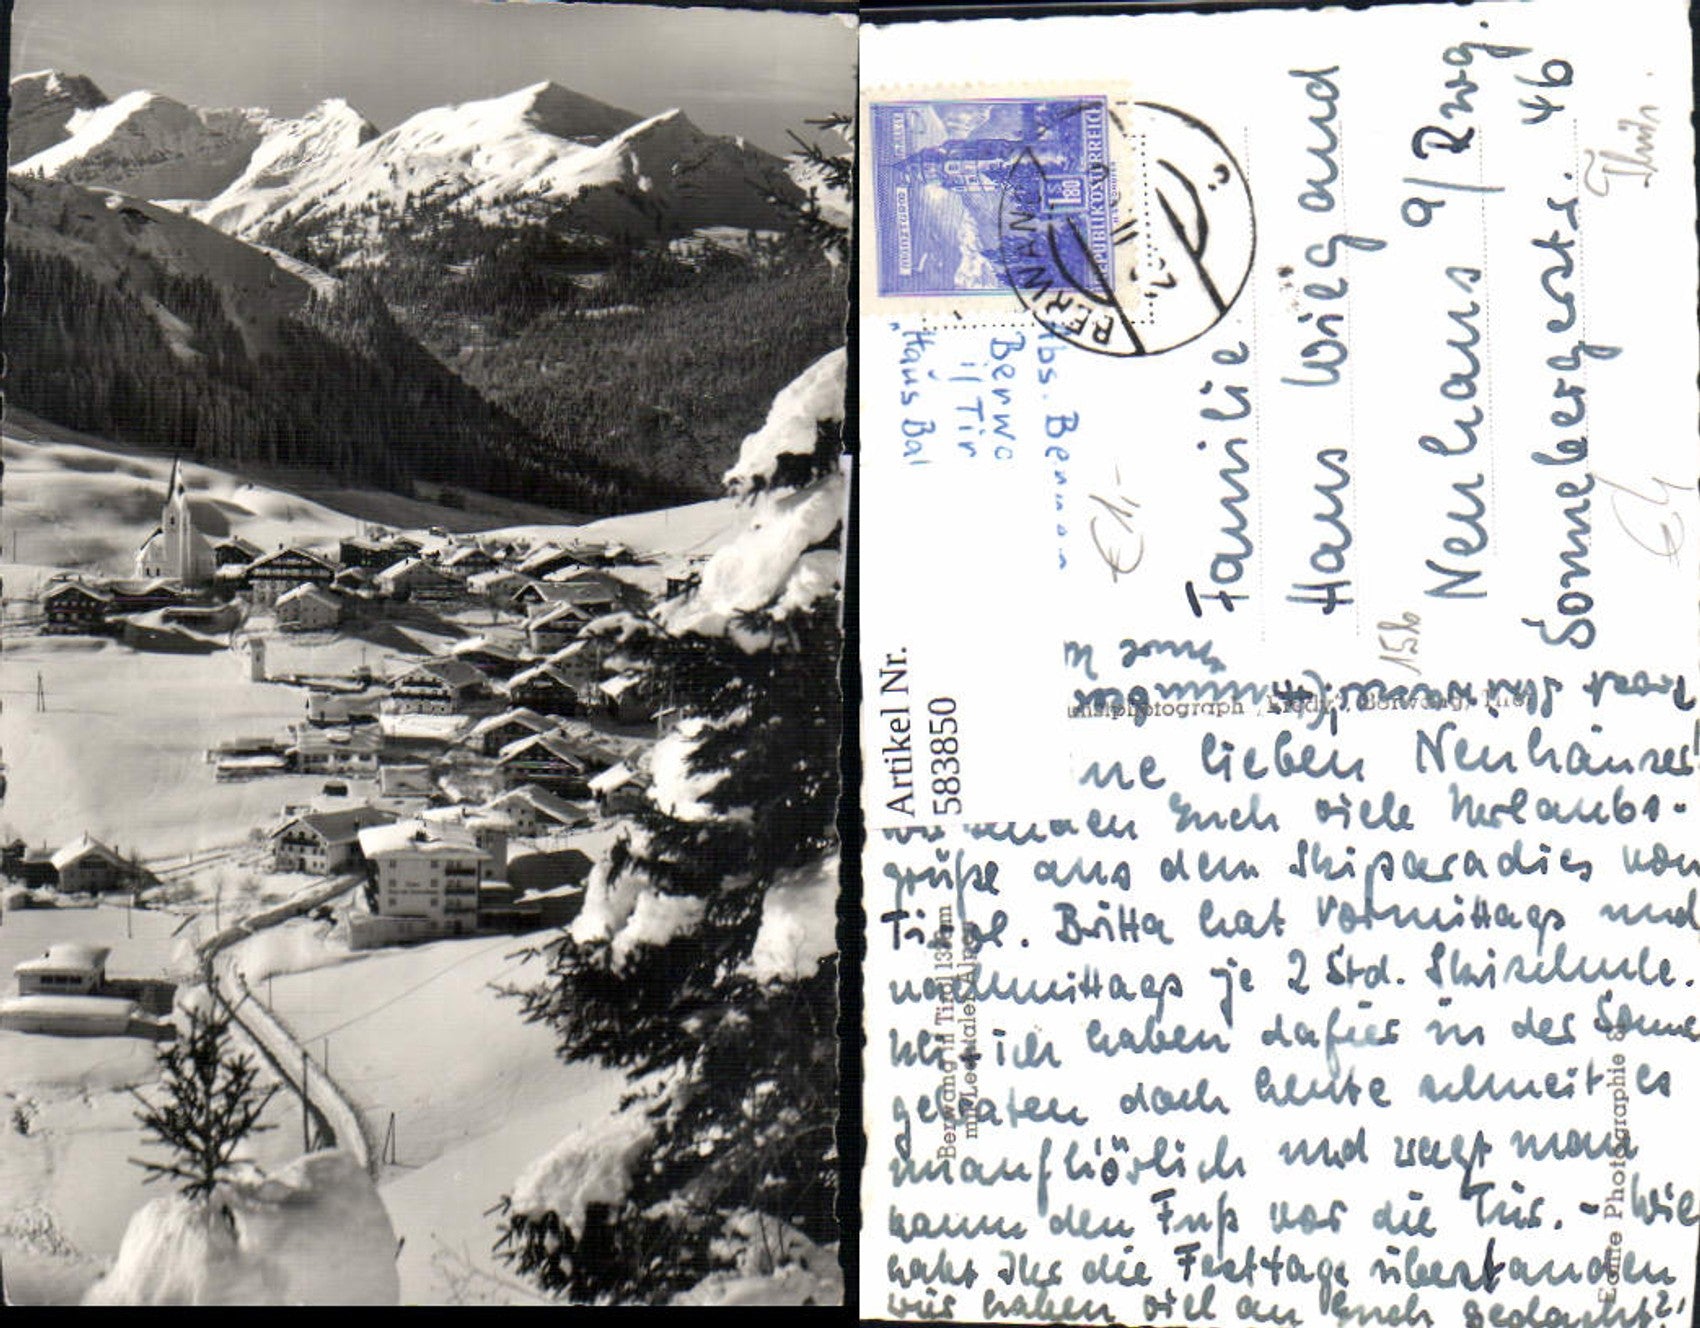 REPUBLIK ÖSTERREICH
S 1.80
BERWANG
Abs. Berwang
Berwa
i/ Tir
"Haus Bal
€ 1,-
Familie
Hans Wiegand
Neuhaus a/Rwg.
Sonnebergerstr. 46
Thür.
Artikel Nr.
583850
Kunstphotograph Berwang, Tirol
ne lieben Neuhäuser!
wir senden Euch viele Urlaubs-
grüße aus dem Skiparadies von
Tirol. Britta hat vormittags und
nachmittags je 2 Std. Skischule.
ich haben dafür in der Sonne
gebraten doch heute schneit es
unaufhörlich und wagt man
kaum den Fuß vor die Tür. - Wie
habt Ihr die Festtage überstanden
wir haben viel an Euch gedacht?
Berwang in Tirol 1336m
mit Lechtaler Alpen
Echte Photographie